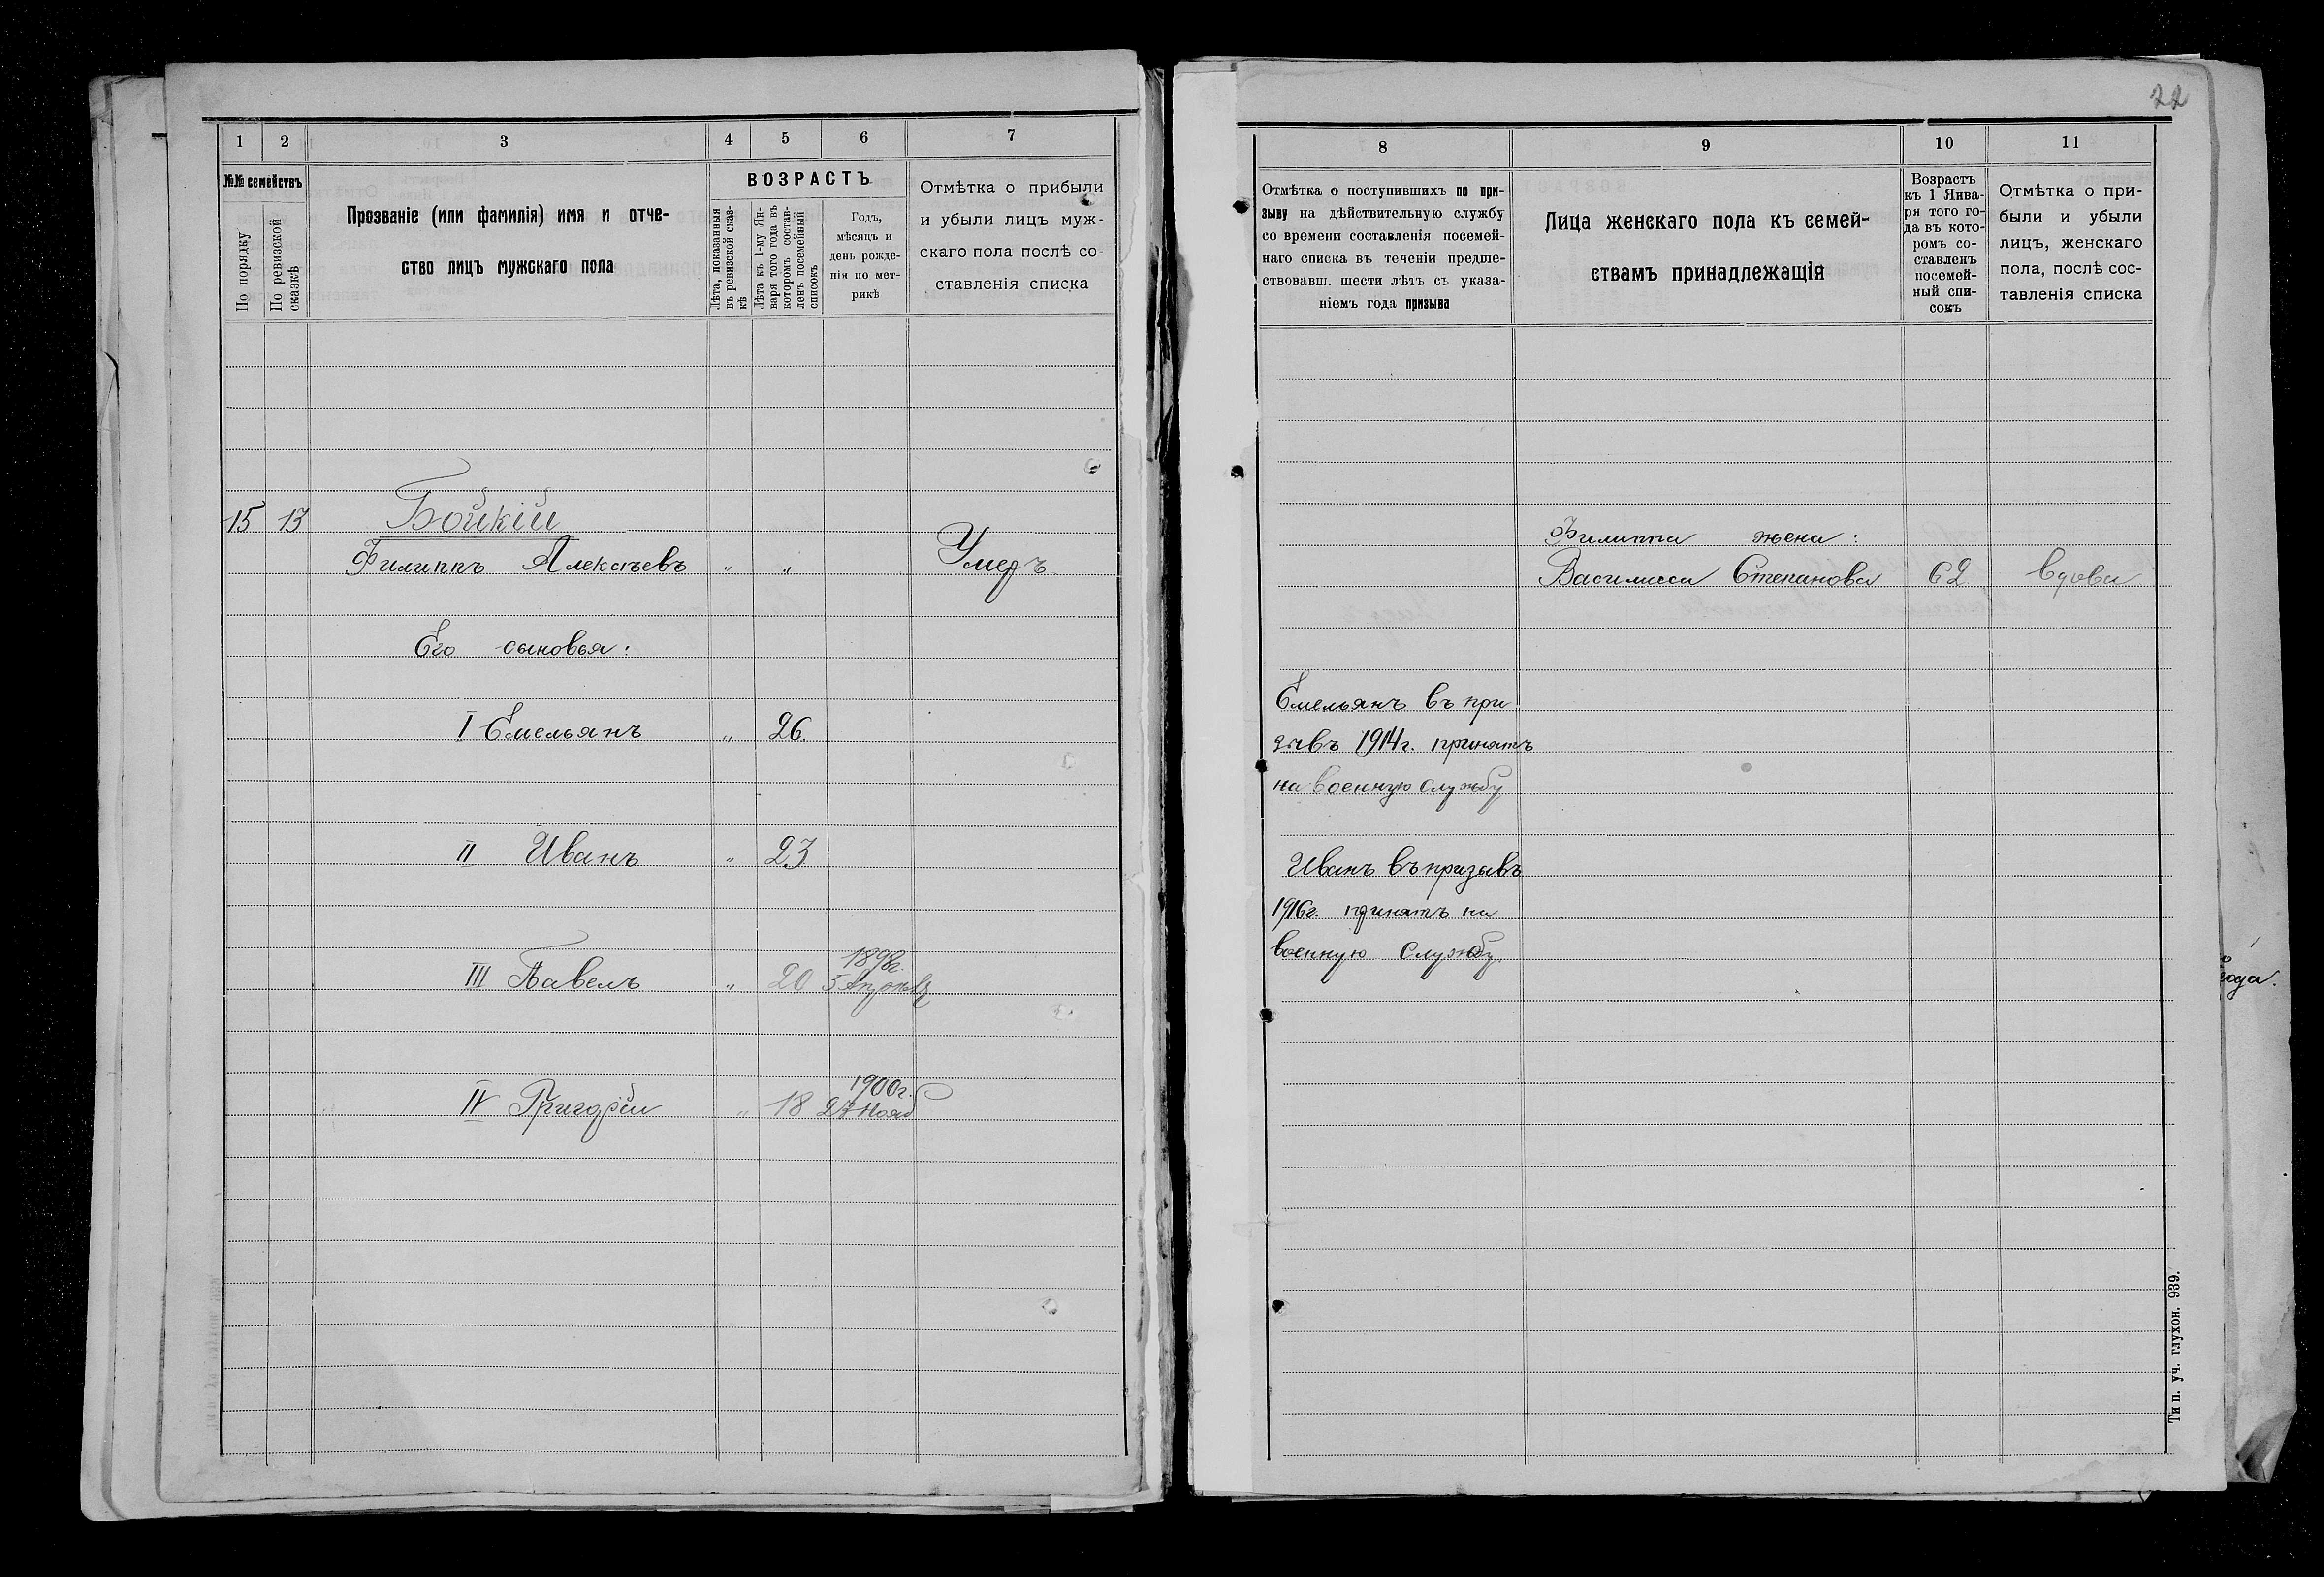 1 2 3 4 5 6 7
№№ семействъ
По порядку
По ревизской сказкѣ
Прозваніе (или фамилія) имя и отче-
ство лицъ мужскаго пола
ВОЗРАСТЪ
Лѣта, показанныя
въ ревизской сказ-
кѣ
Лѣта къ 1-му Ян-
варя того года въ
которомъ состав-
ленъ посемейный
списокъ
Годъ,
мѣсяцъ и
день рожде-
нія по мет-
рикѣ
Отмѣтка о прибыли
и убыли лицъ муж-
скаго пола послѣ со-
ставленія списка
15 13 Бойкій
Филиппъ Алексѣевъ „ „ Умеръ
Его сыновья:
I Емельянъ „ 26
II Иванъ „ 23
1898г.
III Павелъ „ 20 5 Апрѣля
1900г.
IV Григорій „ 18 27 Нояб
22
8 9 10 11
Отмѣтка о поступившихъ по при-
зыву на дѣйствительную службу
со времени составленія посемей-
наго списка въ теченіи предше-
ствовавш. шести лѣтъ съ указа-
ніемъ года призыва
Лица женскаго пола къ семей-
ствамъ принадлежащія
Возрастъ
къ 1 Янва-
ря того го-
да въ кото-
ромъ со-
ставленъ
посемей-
ный спи-
сокъ
Отмѣтка о при-
были и убыли
лицъ, женскаго
пола, послѣ сос-
тавленія списка
Филиппа жена:
Василисса Степанова 62 вдова
Емельянъ въ при
зывъ 1914г. принятъ
на военную службу
Иванъ въ призывъ
1916г. принятъ на
военную службу.
года.
Тип. уч. глухон. 939.